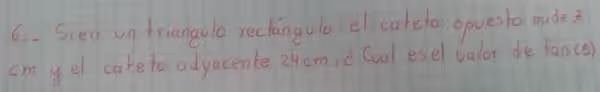 6.- Si en un triangulo rectángulo el cateto opuesto mide 7
cm y el cateto adyacente 24 cm, ¿Cual es el valor de tan(α)